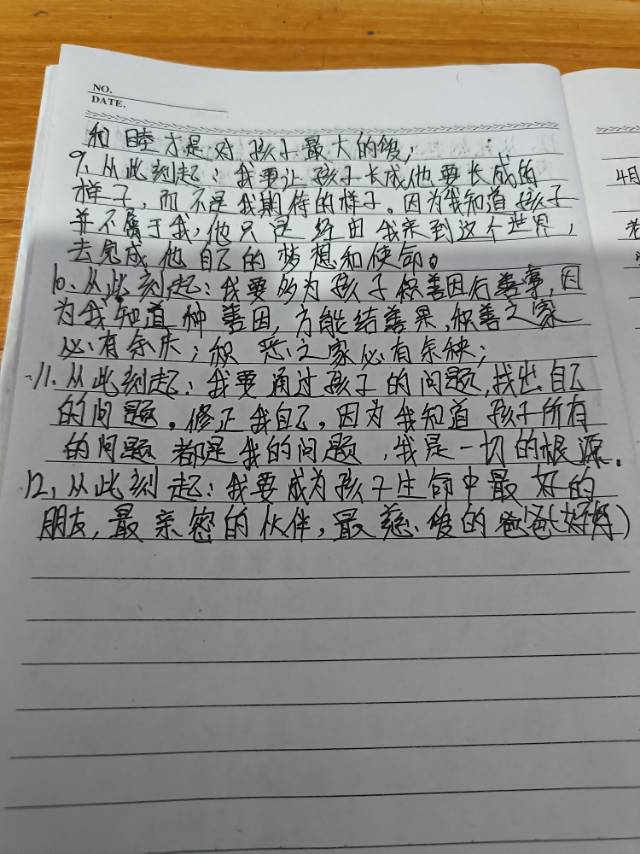 NO.
DATE.
和睦才是对孩子最大的爱;
9、从此刻起:我要让孩子长成他要长成的
样子,而不是我期待的样子。因为我知道孩子
并不属于我,他只是经由我来到这个世界,
去完成他自己的梦想和使命。
10、从此刻起:我要多为孩子积善因行善事,因
为我知道种善因,方能结善果,积善之家
必有余庆;积恶之家必有余秧;
11、从此刻起:我要通过孩子的问题,找出自己
的问题。修正我自己,因为我知道孩子所有
的问题都是我的问题,我是一切的根源。
12、从此刻起:我要成为孩子生命中最好的
朋友,最亲密的伙伴,最慈爱的爸爸(妈妈)
4月